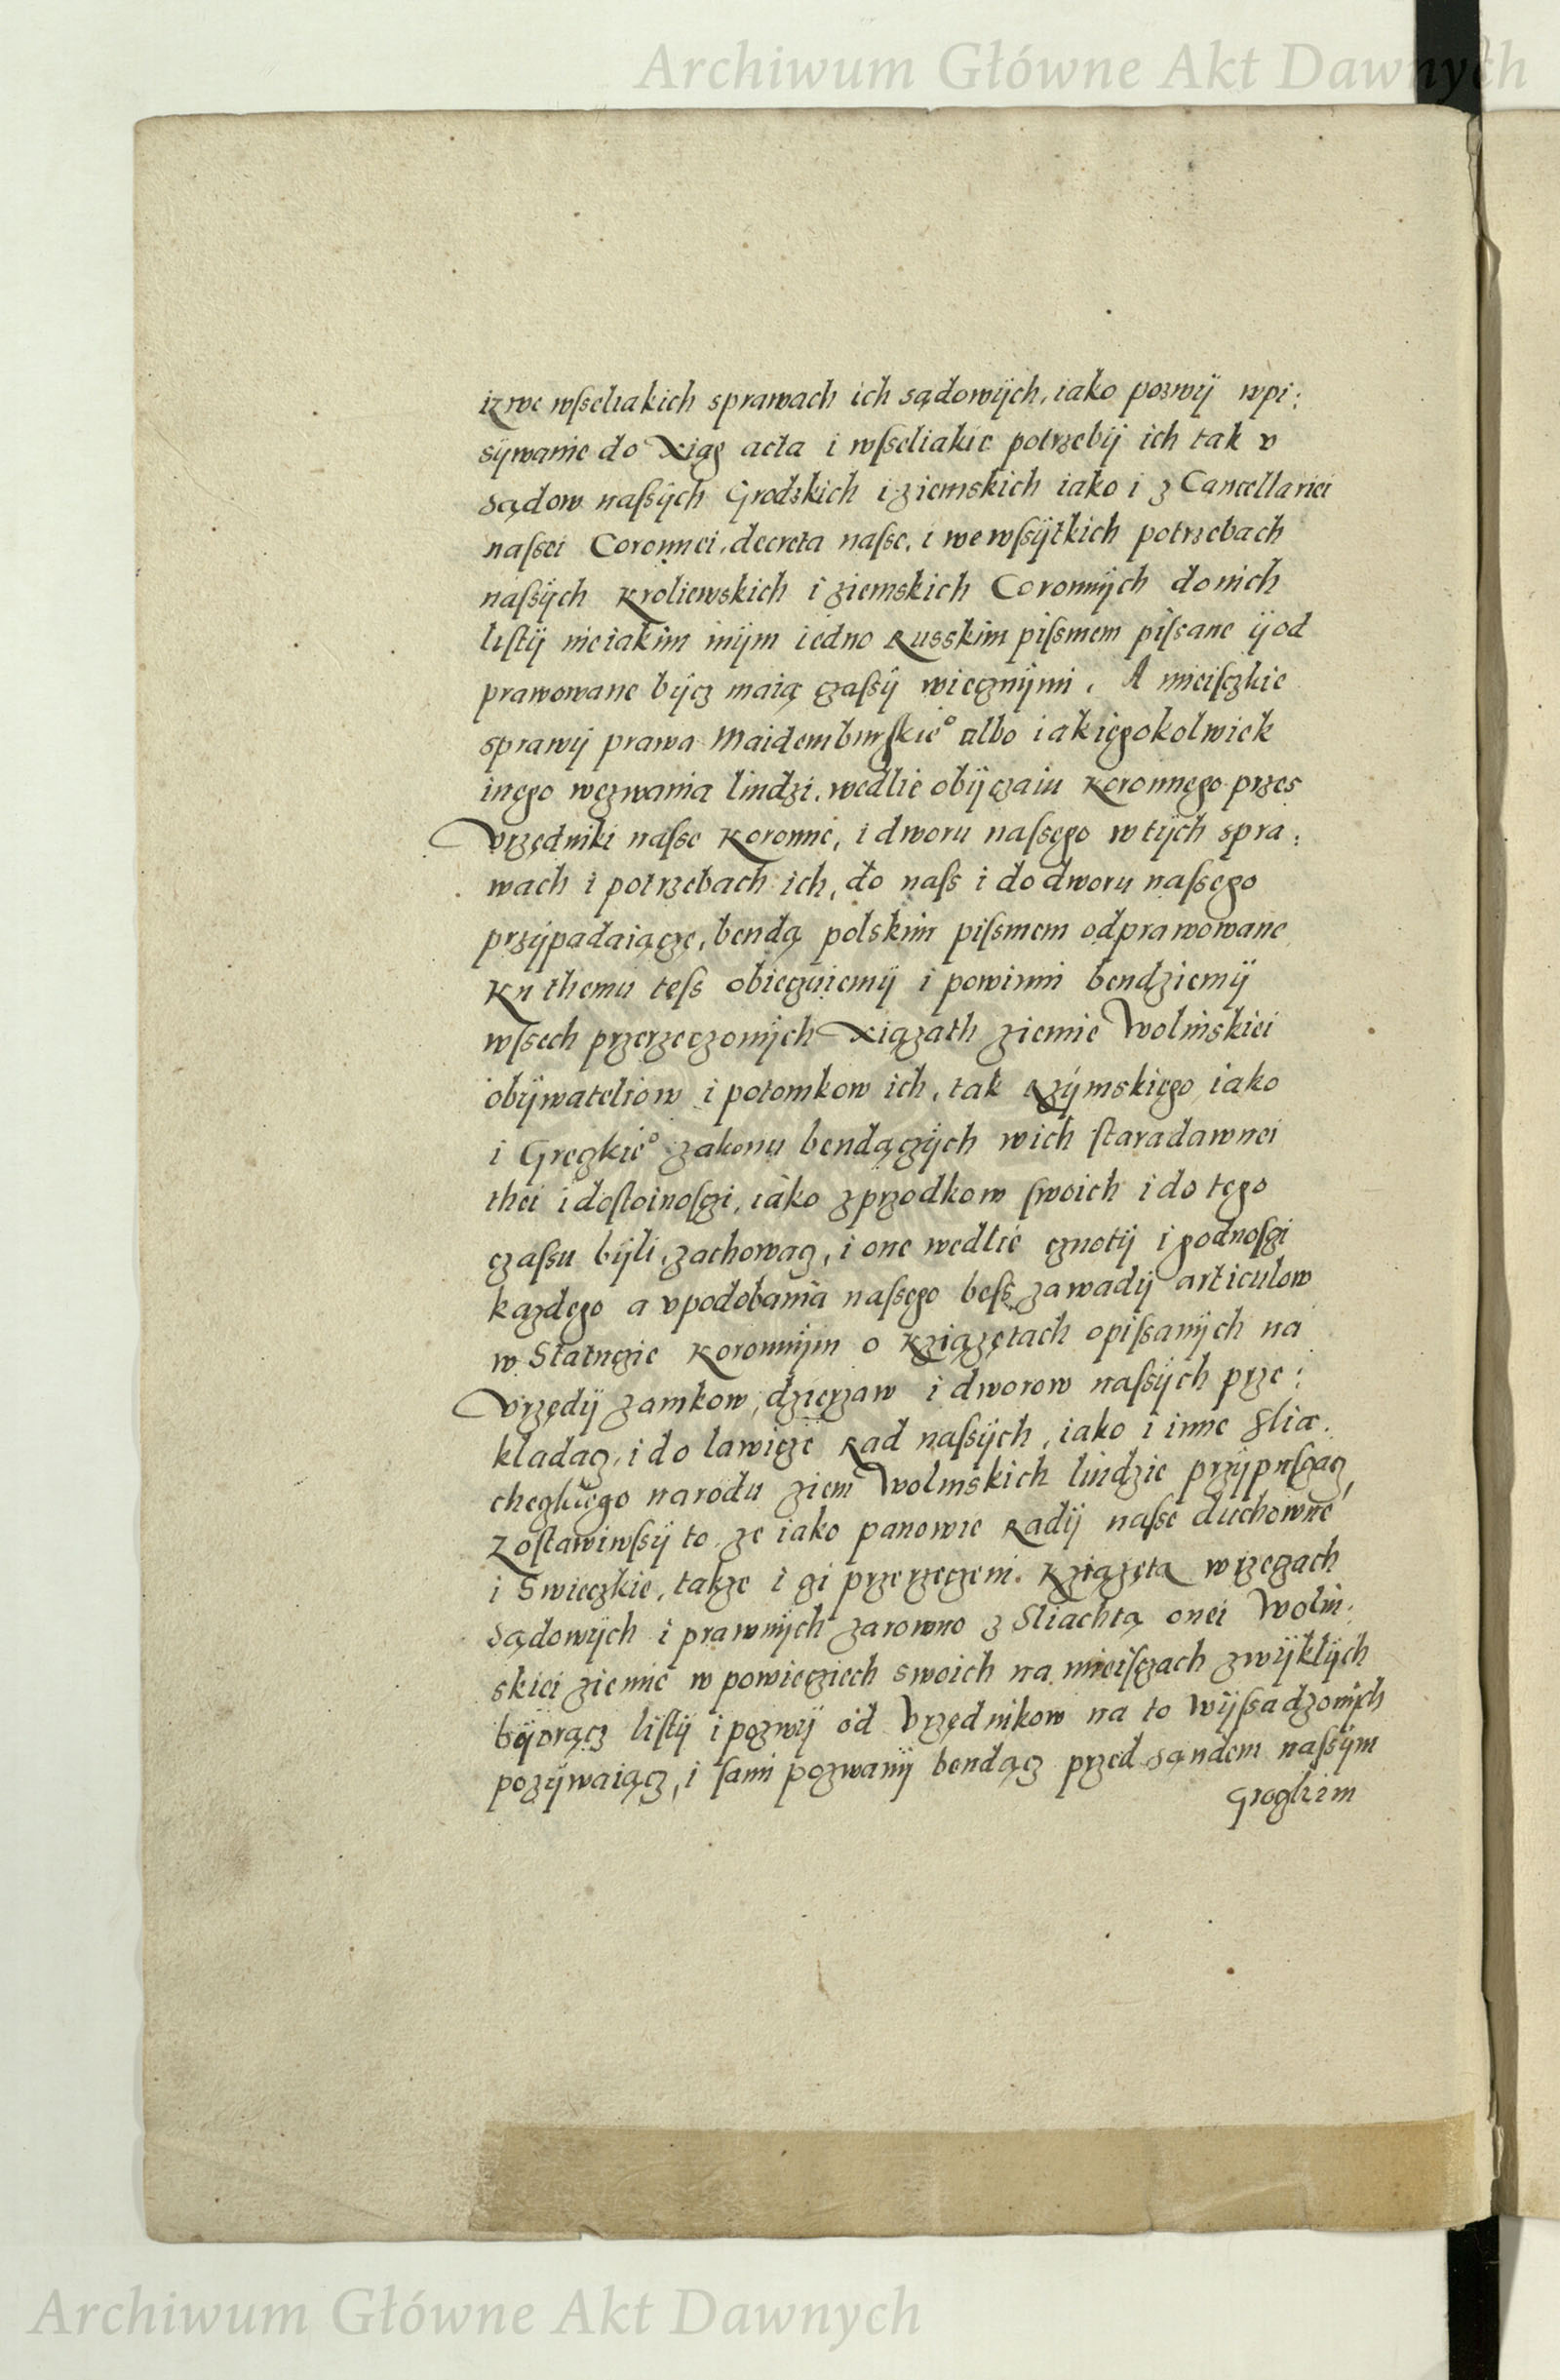 Archiwum Główne Akt Dawnych
iz we wſseliakich sprawach ich sądowÿch, iako pozwÿ wpi:
sÿwanie do Xiąg acta i wſseliakie potrzebÿ ich tak v
Sądow naſsÿch Grodzkich i ziemskich iako i z Cancellariei
naſsei Coronnei, decreta naſse, i we wſsÿtkich potrzebach
naſsÿch Kroliewskich i ziemskich Coronnÿch do nich
liſtÿ nie iakim inÿm iedno Russkim piſsmem piſsane ÿ od
prawowane bÿcz maią czaſsÿ wiecznÿmi. A mieiſczkie
sprawÿ prawa Maidemburſkie° albo iakiegokolwiek
inego wezwania liudzi, wedlie obÿczaiu Koronnego przes
Vrzędniki naſse Koronne, i dworu naſsego w tÿch spra:
wach i potrzebach ich, do naſs i do dworu naſsego
przÿpadaiącze, bendą polskim piſsmem odprawowane
Ku themu teſs obieczuiemÿ i powinni bendziemÿ
wſsech przerzeczonÿch Xiązath ziemie Wolinskiei
obÿwateliow i potomkow ich, tak Rzÿmskiego iako
i Greczkie° zakonu bendączÿch wich ſtaradawnei
thei i doſtoinoſczi, iako z przodkow ſwoich i do tego
czaſsu bÿli, zachowacz, i one wedlie cznotÿ i godnoſczi
kazdego a vpodobania naſsego beſs zawadÿ articulow
w Statucie Koronnÿm o Kziązętach opiſsanÿch na
Vrzędÿ zamkow, dzierzaw i dworow naſsÿch prze:
kladacz, i do lawicze Rad naſsÿch, iako i inne Sliae.
checzkiego narodu ziem Wolinskich liudzie przÿpuſczacz,
Zoſtawiwſsÿ to ze iako panowie Radÿ naſse duchowne
i Swieczkie, takze i czi przerzeczeni Kziązęta w rzeczach
Sądowÿch i prawnÿch zarowno z Sliachtą onei Wolin:
skiei ziemie w powieciech swoich na mieiſczach zwÿklÿch
bÿorącz liſtÿ i pozwÿ od Vrzędnikow na to wÿſsadzonÿch
pozÿwaiącz, i ſami pozwanÿ bendącz przed Sąndem naſsÿm
Groczkim
Archiwum Główne Akt Dawnych